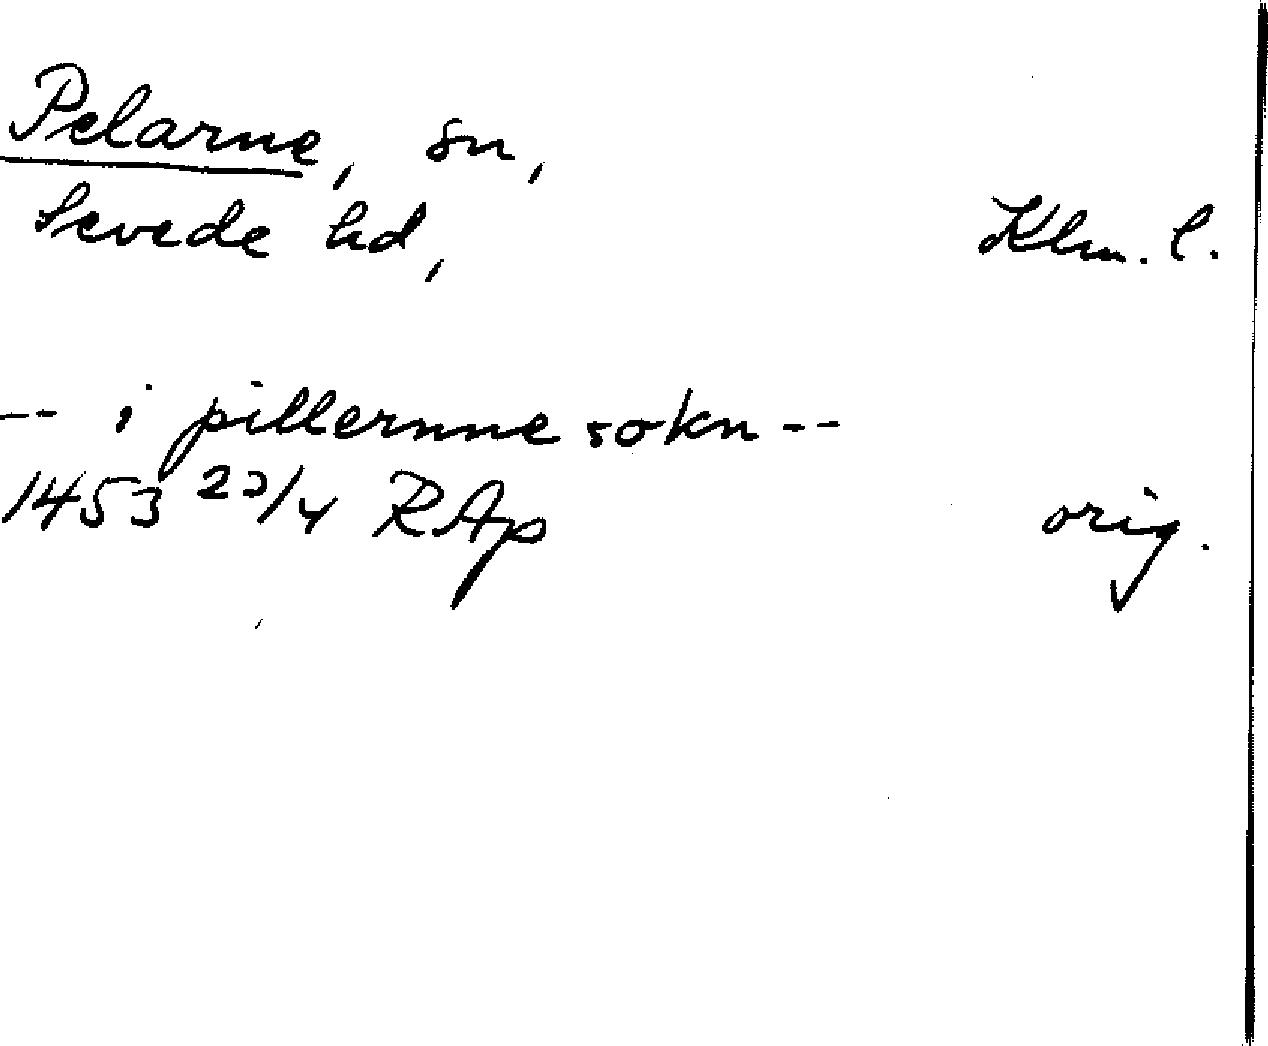 Pelarne, sn,
Sevede hd, Klm. l.
-- i pillernne sokn --
1453 22/4 RAp orig.